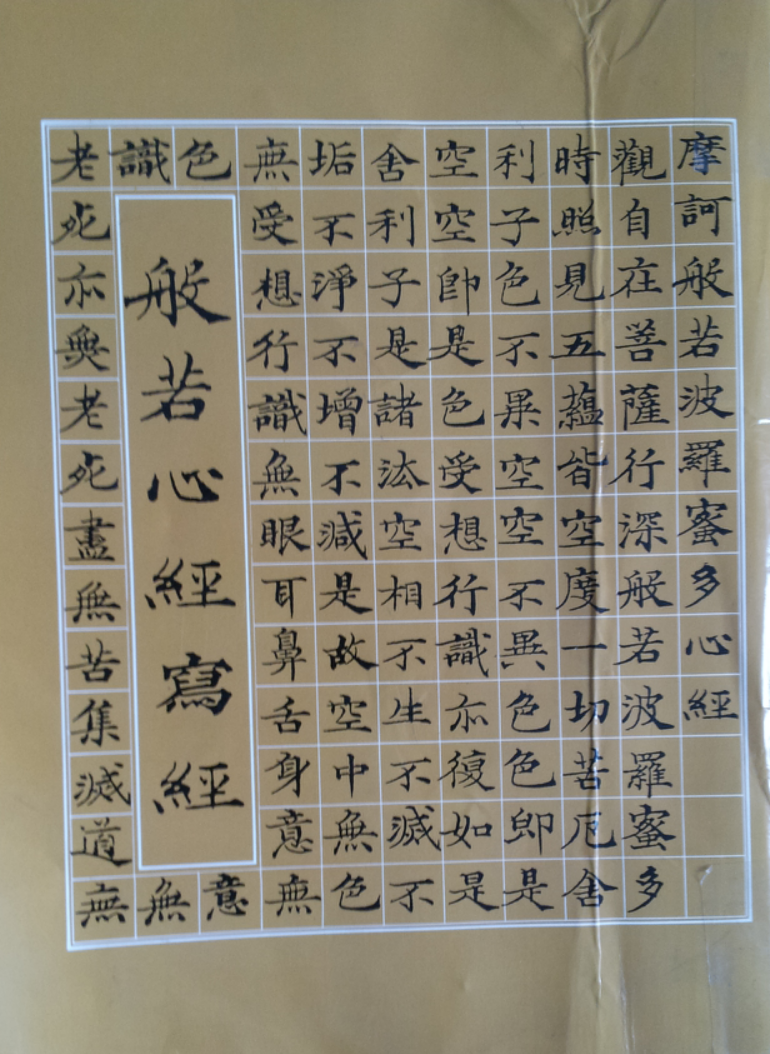 摩訶般若波羅蜜多心經
觀自在菩薩行深般若波羅蜜多
時照見五蘊皆空度一切苦厄舍
利子色不異空空不異色色即是
空空即是色受想行識亦復如是
舍利子是諸法空相不生不滅不
垢不淨不增不減是故空中無色
無受想行識無眼耳鼻舌身意無
色意
識無
般若心經寫經
老死亦無老死盡無苦集滅道無